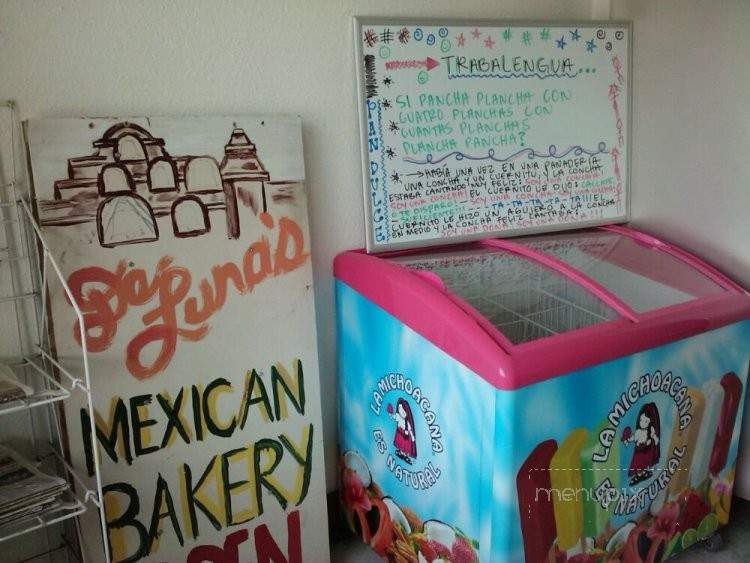 TRABALENGUA...
SI PANCHA PLANCHA CON
CUATRO PLANCHAS CON
CUANTAS PLANCHAS
PLANCHA PANCHA?
PAN DULCE
HABIA UNA VEZ EN UNA PANADERIA
UNA CONCHA Y UN CUERNITO, Y LA CONCHA
ESTABA CANTANDO MUY FELIZ: SOY UNA CONCHA!
SOY UNA CONCHA! EL CUERNITO LE DIJO: CALLATE
O TE DISPARO! SOY UNA CONCHA! SOY UNA CONCHA!
Y TA-TA-TA-TA-TA!!! EL
CUERNITO LE HIZO UN AGUJERO A LA CONCHA
EN MEDIO Y LA CONCHA FELIZ CANTABA:
SOY UNA DONA! SOY UNA DONA!!!
De Luna's
MEXICAN
BAKERY
OPEN
LA MICHOACANA
ES NATURAL
LA MICHOACANA
ES NATURAL
menupix